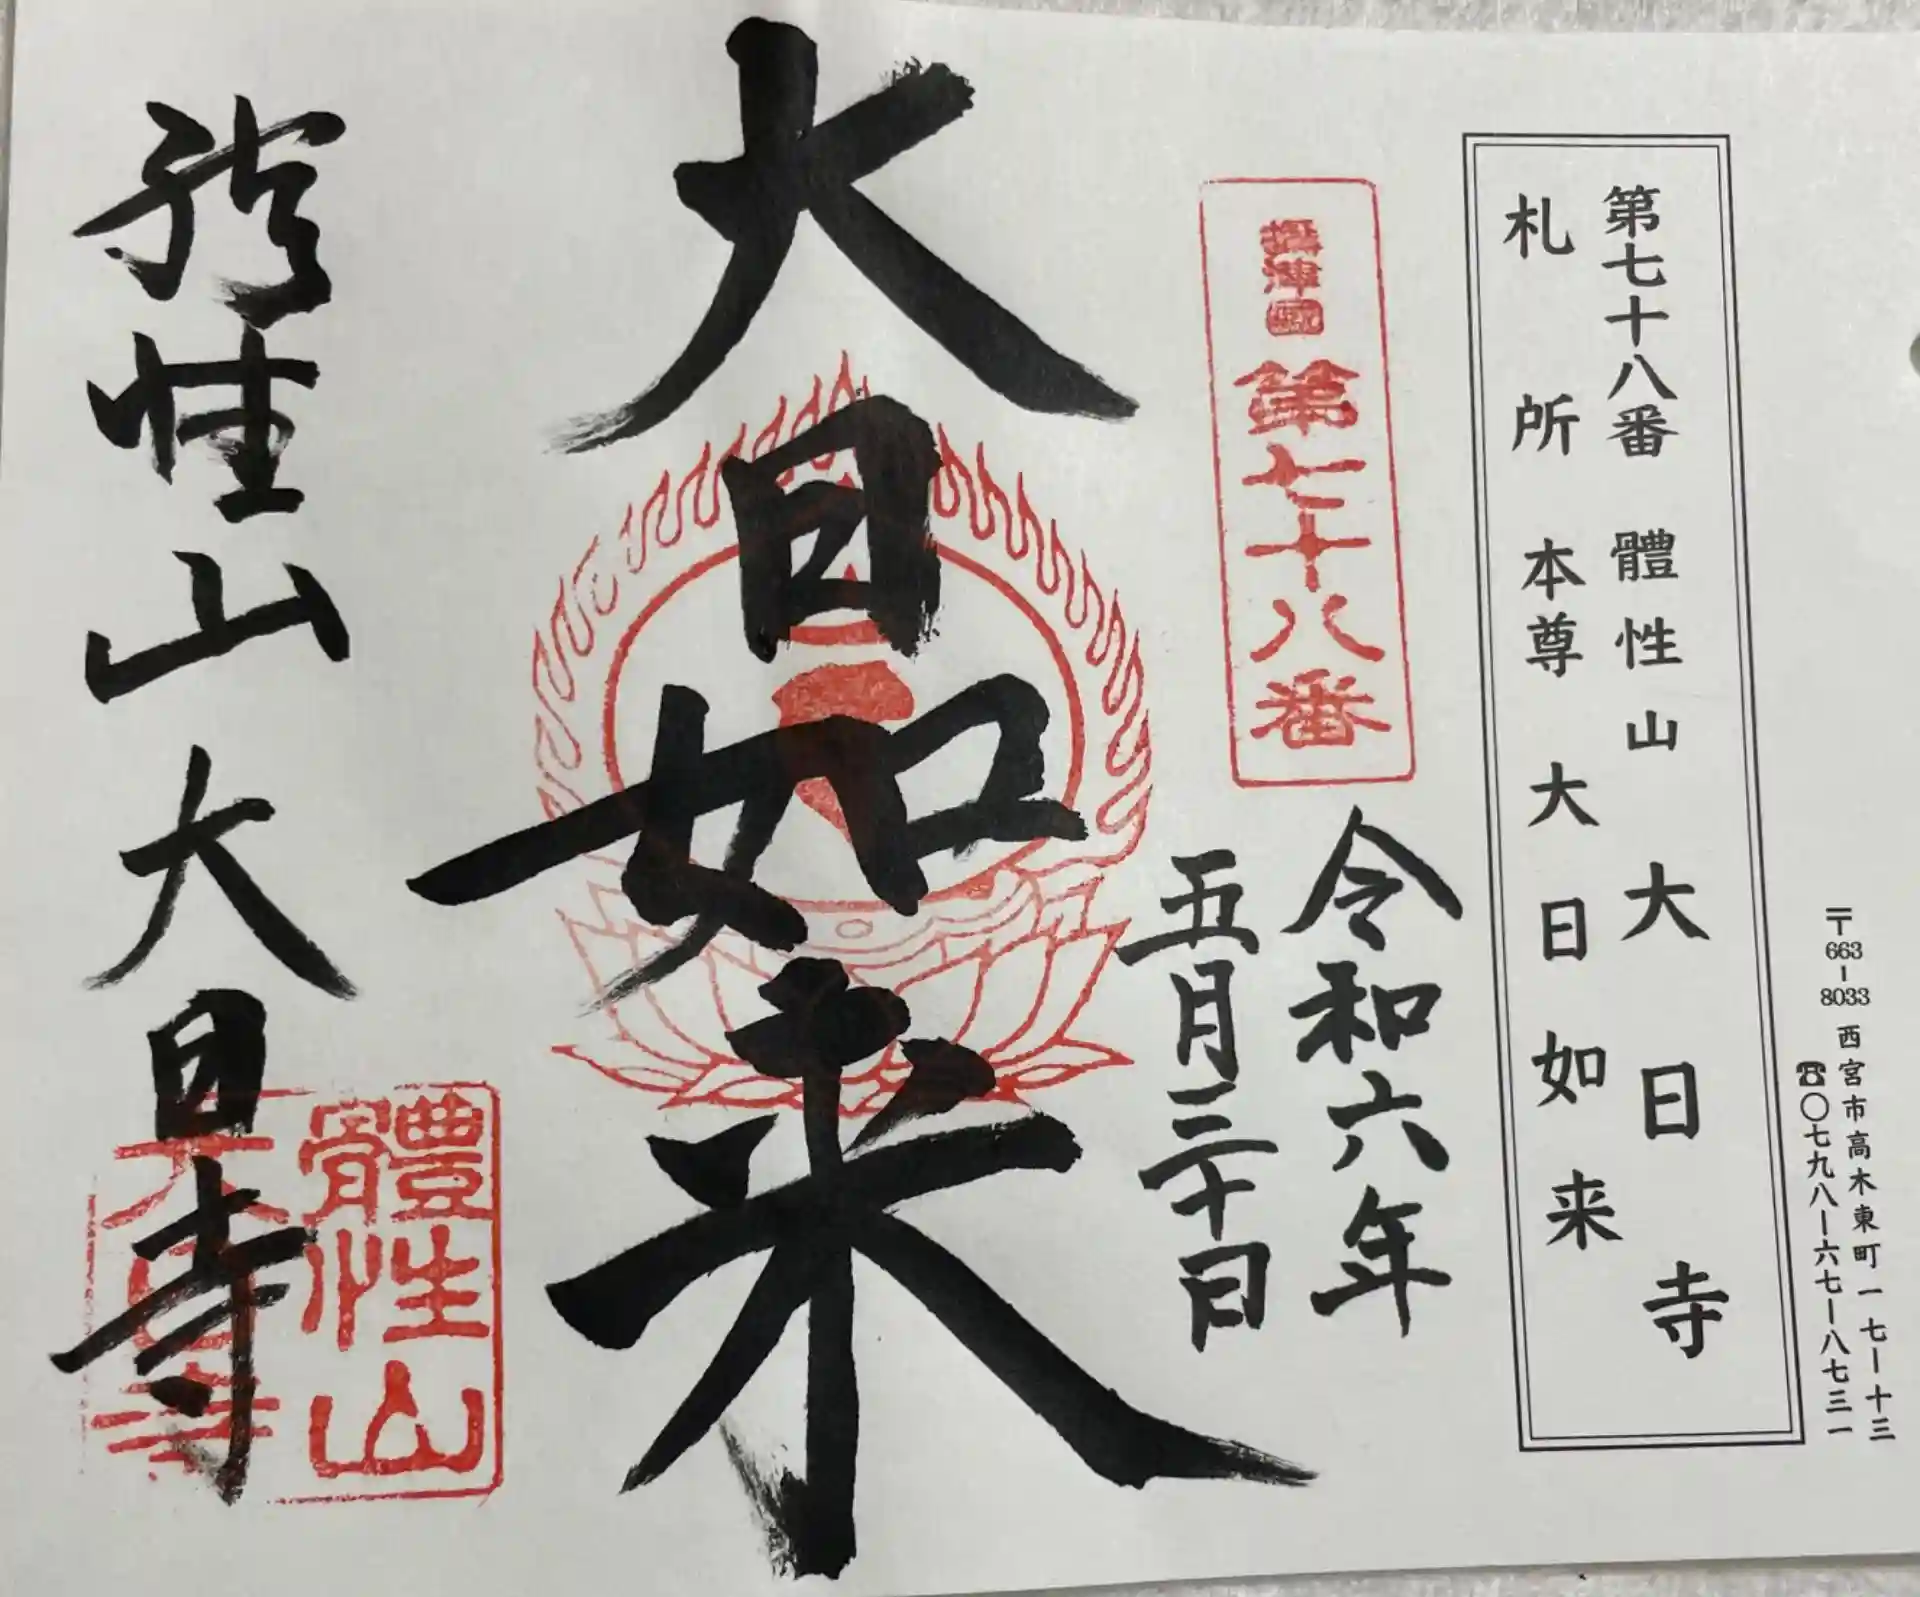 〒663-8033 西宮市高木東町一七ー十三
☎〇七九八ー六七ー八七三一
第七十八番 體性山 大日寺
札所 本尊 大日如来
摂津國 第七十八番
令和六年
五月三十日
大日如来
體性山 大日寺
體性山
大日寺